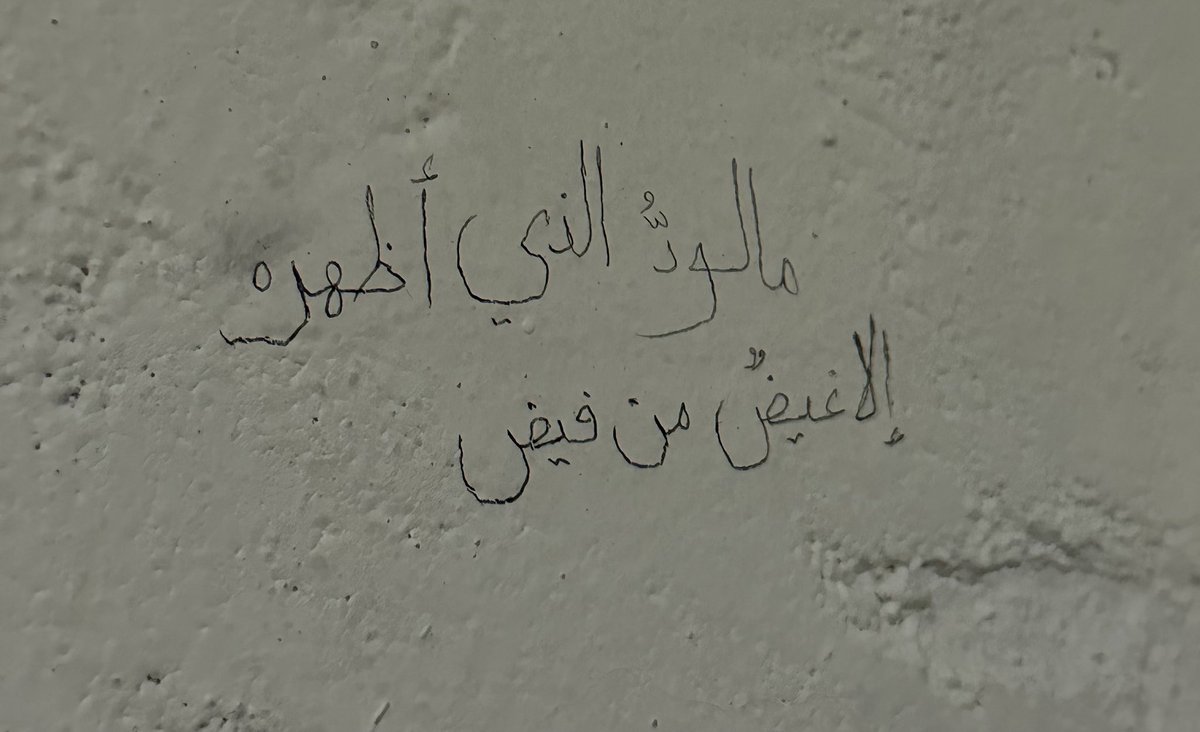 مالودُّ الذي أظهره
إلا غيضٌ من فيض